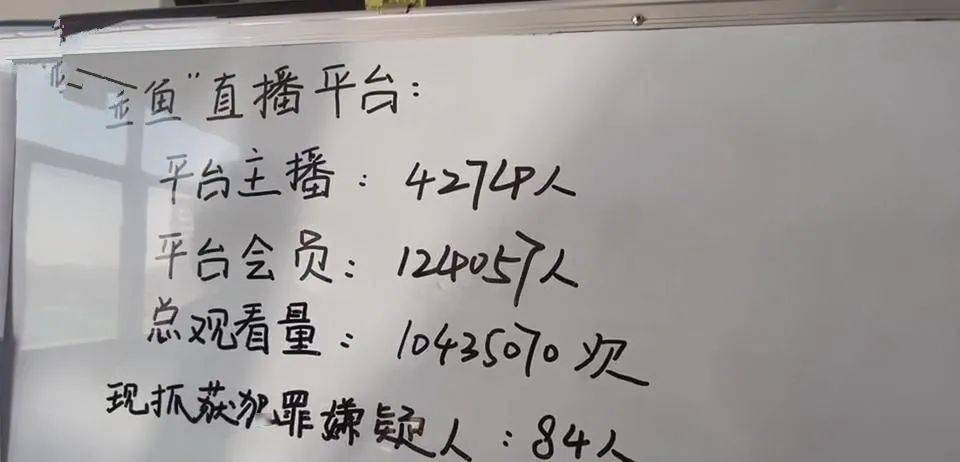 鱼"直播平台：
平台主播：4274人
平台会员：124057人
总观看量：10435070次
现抓获犯罪嫌疑人：84人